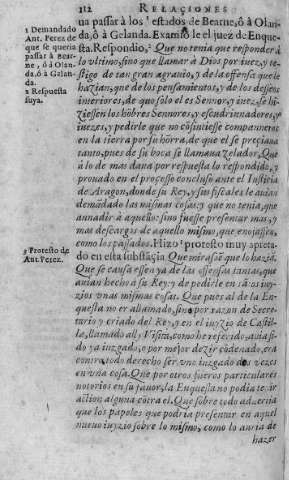 112 RELACIONES
1 Demandado
Ant. Perez de
que se queria
passar à Bear-
ne, ô à Olan-
da, ô à Gelan-
da.
2 Respuesta
suya.
ua passar à los ¹ estados de Bearne, ô à Olan-
da, ô à Gelanda. Examinóle el juez de Enque-
sta. Respondio, ² Que no tenia que responder à
lo vltimo, sino que llamar à Dios por iuez, y te-
stigo de tan gran agrauio, y de la offensa que le
hazian, que de los pensamientos, y de los desseos
interiores, de que sólo el es Sennor, y iuez, se hi-
ziessen los hõbres Sennores, y escudrinnadores, y
iuezes, y pedirle no cõsintiesse companneros
en la tierra por su hõrra, de que el se preciana
tanto, pues de su boca se llamaua zelador. Que
à lo de mas daua por respuesta lo respondido, y
prouado en el processo conclusò ante el Iusticia
de Aragon, donde su Rey, y sus fiscales le auian
demãdado las mismas cosas: y que no tenia, que
annadir à aquello: sino fuesse presentar mas, y
mas descargos de aquello mismo, que enojassen,
como los passados. Hizo ³ protesto muy apreta-
3 Protesto de
Ant. Perez.
do en esta substãcia Que mirassen que lo hazià.
Que se causassen ya de las offensas tantas, que
auian hecho à su Rey, y de pedirle en tãtos iuy-
zios vnas mismas cosas. Que pues al de la En-
questa no era aliamado, sino por razon de Secre-
tario y criado del Rey, y en el iuyzio de Castil-
la, llamado allà Visita, como he referido, auia si-
do ya iuzgado, o por mejor dezir cõdenado, era
contra todo derecho ser vno iuzgado dos vezes
en vna cosa. Que por otros fueros particulares
notorios en su fauor, la Enquesta no podia tener
action alguna cõtra el. Que sobre todo aduertia
que los papeles que podria presentar en aquel
nueuo iuyzio sobre lo mismo, como lo auria de
hazer